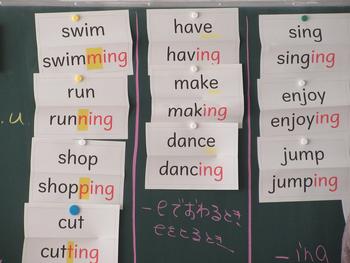 swim
swimming
run
running
.u.
shop
shopping
cut
cutting
have
having
make
making
dance
dancing
-eでおわるとき
eをとるとき
sing
singing
enjoy
enjoying
jump
jumping
-ing